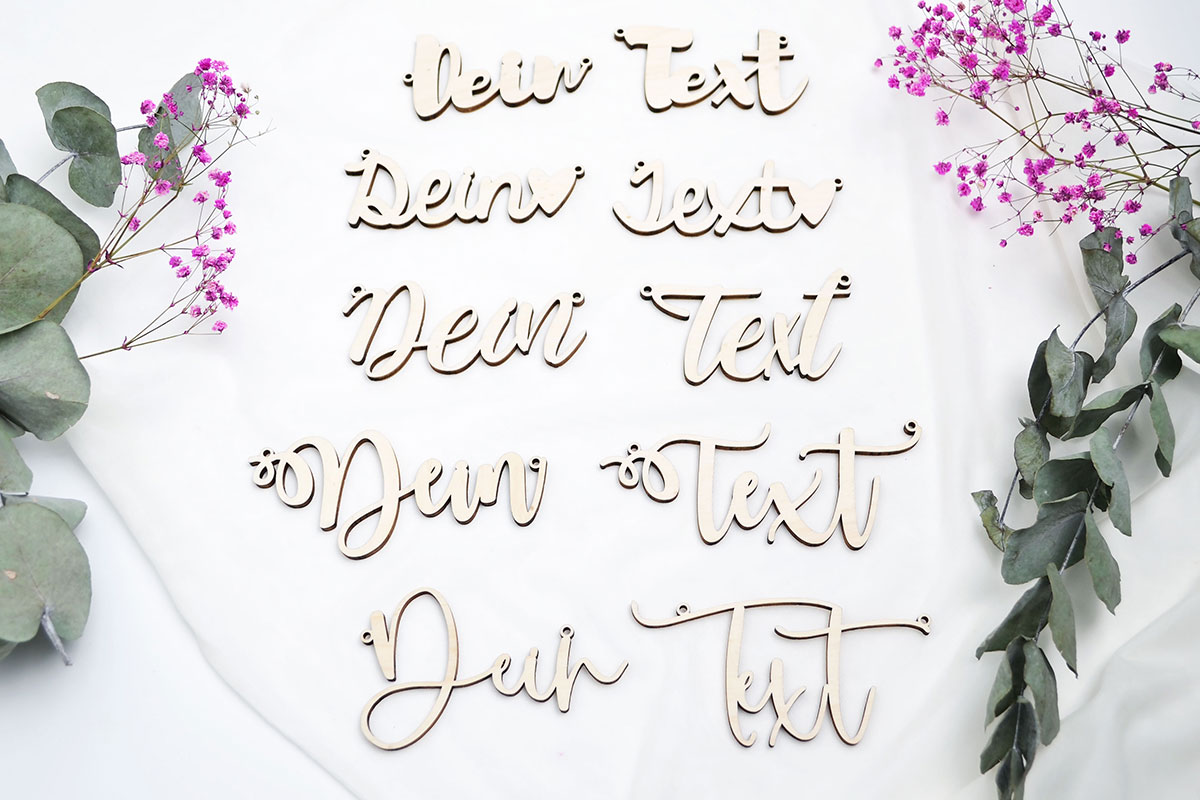 Dein Text
Dein Text
Dein Text
Dein Text
Dein Text